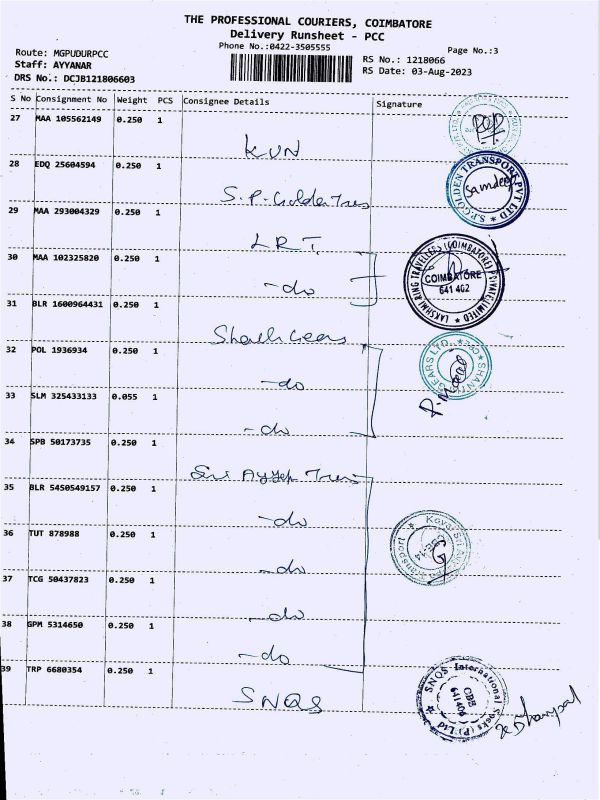 THE PROFESSIONAL COURIERS, COIMBATORE
Delivery Runsheet - PCC
Phone No.:0422-3505555
Page No.:3
Route: MGPUDURPCC
Staff: AYYANAR
DRS No.: DCJB121806603
RS No.: 1218066
RS Date: 03-Aug-2023
S No Consignment No Weight PCS Consignee Details Signature
27 MAA 105562149 0.250 1
KUN
28 EDQ 25604594 0.250 1
S.P. Golden Trns
S.P.GOLDEN TRANSPORT PVT LTD
Sandeep
29 MAA 293004329 0.250 1
LRT
30 MAA 102325820 0.250 1
-do
LAKSHMI RING TRAVELLERS (COIMBATORE) PRIVATE LIMITED
COIMBATORE
641 402
31 BLR 1600964431 0.250 1
Shanthi Gears
32 POL 1936934 0.250 1
-do
SHANTHI GEARS LTD.
33 SLM 325433133 0.055 1
-do
34 SPB 50173735 0.250 1
Sri Ayyan Trns
35 BLR 5450549157 0.250 1
-do
36 TUT 878988 0.250 1
-do
CBE-14
37 TCG 50437823 0.250 1
-do
38 GPM 5314650 0.250 1
-do
39 TRP 6680354 0.250 1
SNQS
SNQS International Socks (P) Ltd
CBE
641406